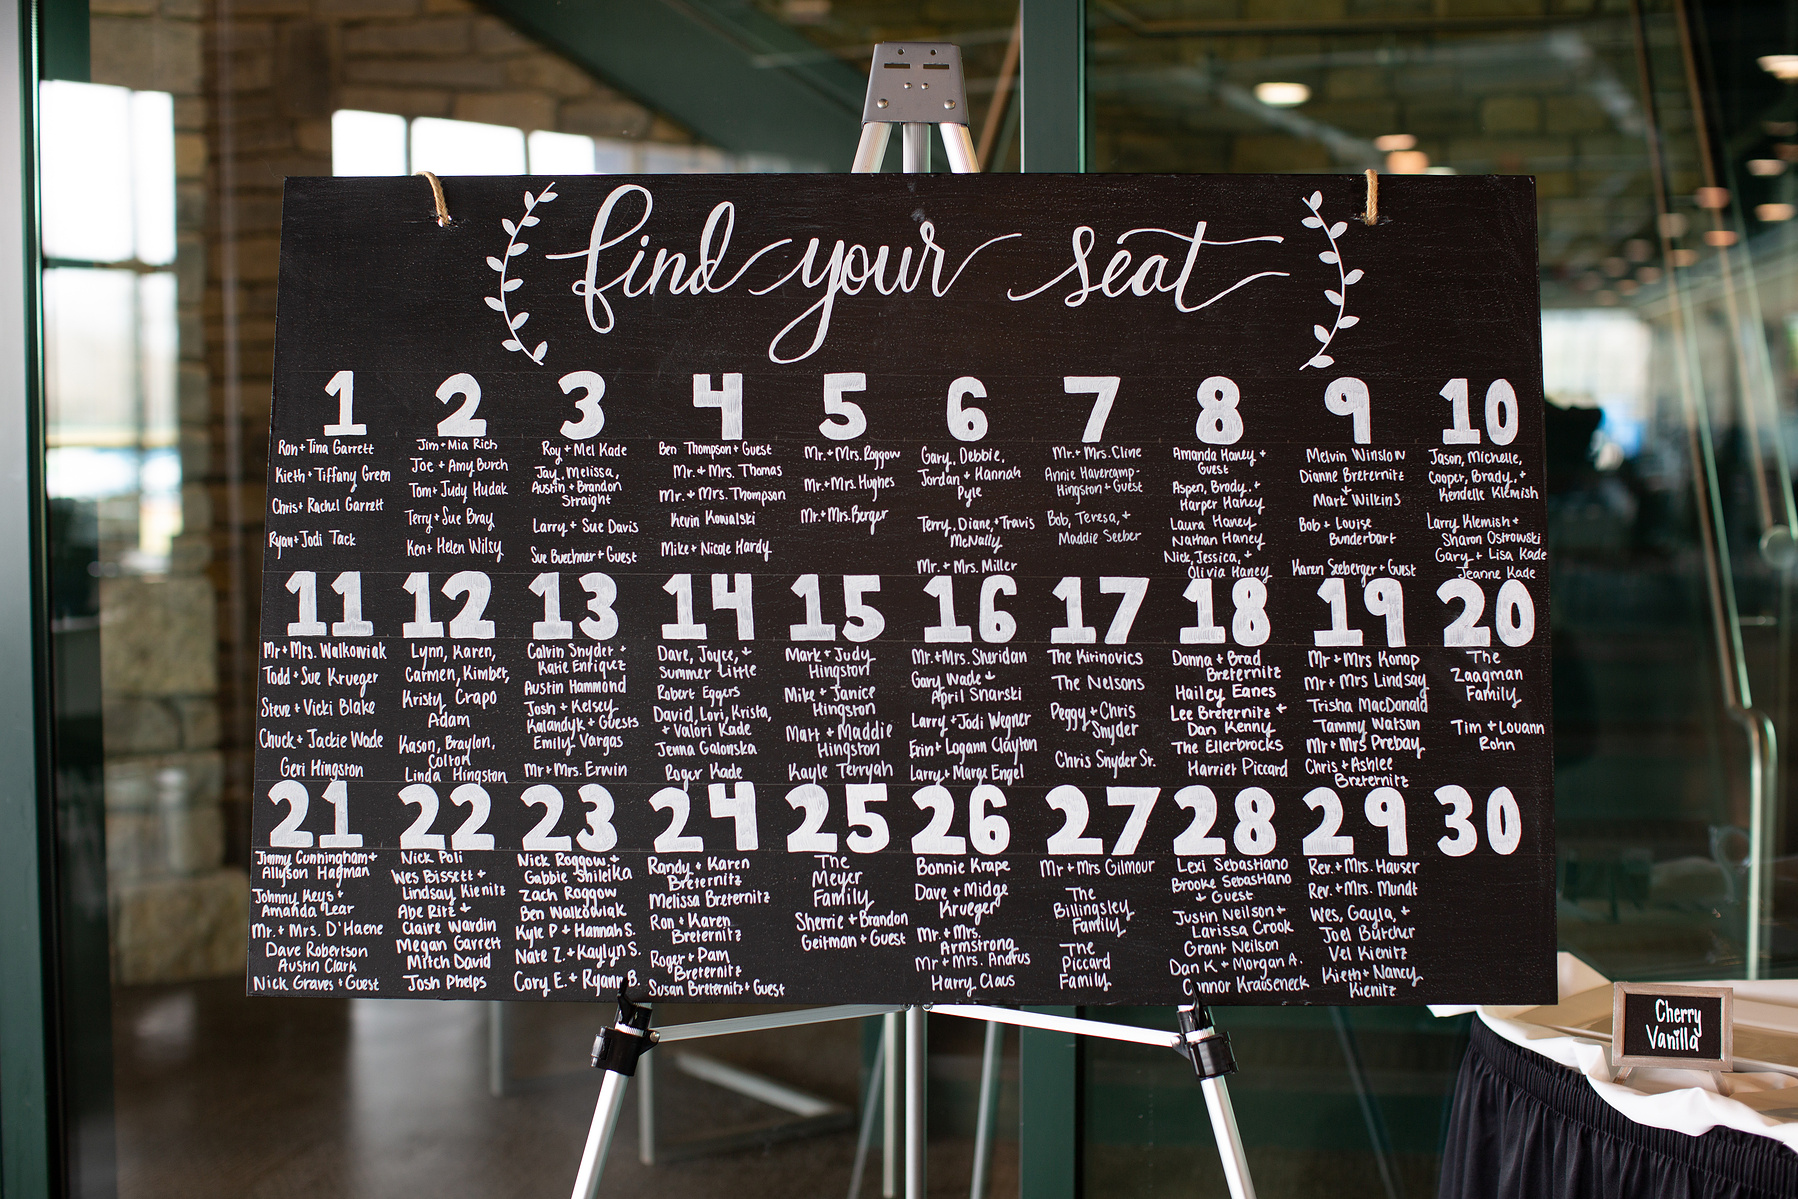 find your seat
1
Ron + Tina Garrett
Kieth + Tiffany Green
Chris + Rachel Garrett
Ryan + Jodi Tack
2
Jim + Mia Rich
Joe + Amy Burch
Tom + Judy Hudak
Terry + Sue Bray
Ken + Helen Wilsy
3
Roy + Mel Kade
Jay, Melissa,
Austin + Brandon
Straight
Larry + Sue Davis
Sue Buechner + Guest
4
Ben Thompson + Guest
Mr. + Mrs. Thomas
Mr. + Mrs. Thompson
Kevin Kowalski
Mike + Nicole Hardy
5
Mr. + Mrs. Roggow
Mr. + Mrs. Hughes
Mr. + Mrs. Berger
6
Gary, Debbie,
Jordan + Hannah
Pyle
Terry, Diane, + Travis
McNally
Mr. + Mrs. Miller
7
Mr. + Mrs. Cline
Annie Havercamp-
Hingston + Guest
Bob, Teresa, +
Maddie Seeber
8
Amanda Haney +
Guest
Aspen, Brody, +
Harper Haney
Laura Haney
Nathan Haney
Nick, Jessica, +
Olivia Haney
9
Melvin Winslow
Dianne Breternitz
+
Mark Wilkins
Bob + Louise
Bunderbart
Karen Seeberger + Guest
10
Jason, Michelle,
Cooper, Brady, +
Kendelle Klemish
Larry Klemish +
Sharon Ostrowski
Gary + Lisa Kade
Jeanne Kade
11
Mr + Mrs. Walkowiak
Todd + Sue Krueger
Steve + Vicki Blake
Chuck + Jackie Wade
Geri Hingston
12
Lynn, Karen,
Carmen, Kimber,
Kristy, Crapo
Adam
Kason, Braylon,
Colton
Linda Hingston
13
Calvin Snyder +
Katie Enriquez
Austin Hammond
Josh + Kelsey
Kalandyk + Guests
Emily Vargas
Mr + Mrs. Erwin
14
Dave, Joyce, +
Summer Little
Robert Eggers
David, Lori, Krista,
+ Valori Kade
Jenna Galonska
Roger Kade
15
Mark + Judy
Hingston
Mike + Janice
Hingston
Matt + Maddie
Hingston
Kayle Terryah
16
Mr. + Mrs. Sheridan
Gary Wade +
April Snarski
Larry + Jodi Wegner
Erin + Logann Clayton
Larry + Marge Engel
17
The Kirinovics
The Nelsons
Peggy + Chris
Snyder
Chris Snyder Sr.
18
Donna + Brad
Breternitz
Hailey Eanes
Lee Breternitz +
Dan Kenny
The Ellerbrocks
Harriet Piccard
19
Mr + Mrs Konop
Mr + Mrs Lindsay
Trisha MacDonald
Tammy Watson
Mr + Mrs Prebay
Chris + Ashlee
Breternitz
20
The
Zaagman
Family
Tim + Louann
Rohn
21
Jimmy Cunningham +
Allyson Hagman
Johnny Keys +
Amanda Lear
Mr. + Mrs. D'Haene
Dave Robertson
Austin Clark
Nick Graves + Guest
22
Nick Poli
Wes Bissett +
Lindsay Kienitz
Abe Ritz +
Claire Wardin
Megan Garrett
Mitch David
Josh Phelps
23
Nick Roggow +
Gabbie Shileika
Zach Roggow
Ben Walkowiak
Kyle P + Hannah S.
Nate Z. + Kaylyn S.
Cory E. + Ryann B.
24
Randy + Karen
Breternitz
Melissa Breternitz
Ron + Karen
Breternitz
Roger + Pam
Breternitz
Susan Breternitz + Guest
25
The
Meyer
Family
Sherrie + Brandon
Geitman + Guest
26
Bonnie Krape
Dave + Midge
Krueger
Mr. + Mrs.
Armstrong
Mr + Mrs. Andrus
Harry Claus
27
Mr + Mrs Gilmour
The
Billingsley
Family
The
Piccard
Family
28
Lexi Sebastiano
Brooke Sebastiano
+ Guest
Justin Neilson +
Larissa Crook
Grant Neilson
Dan K + Morgan A.
Connor Krauseneck
29
Rev. + Mrs. Hauser
Rev. + Mrs. Mundt
Wes, Gayla, +
Joel Butcher
Vel Kienitz
Kieth + Nancy
Kienitz
30
Cherry
Vanilla